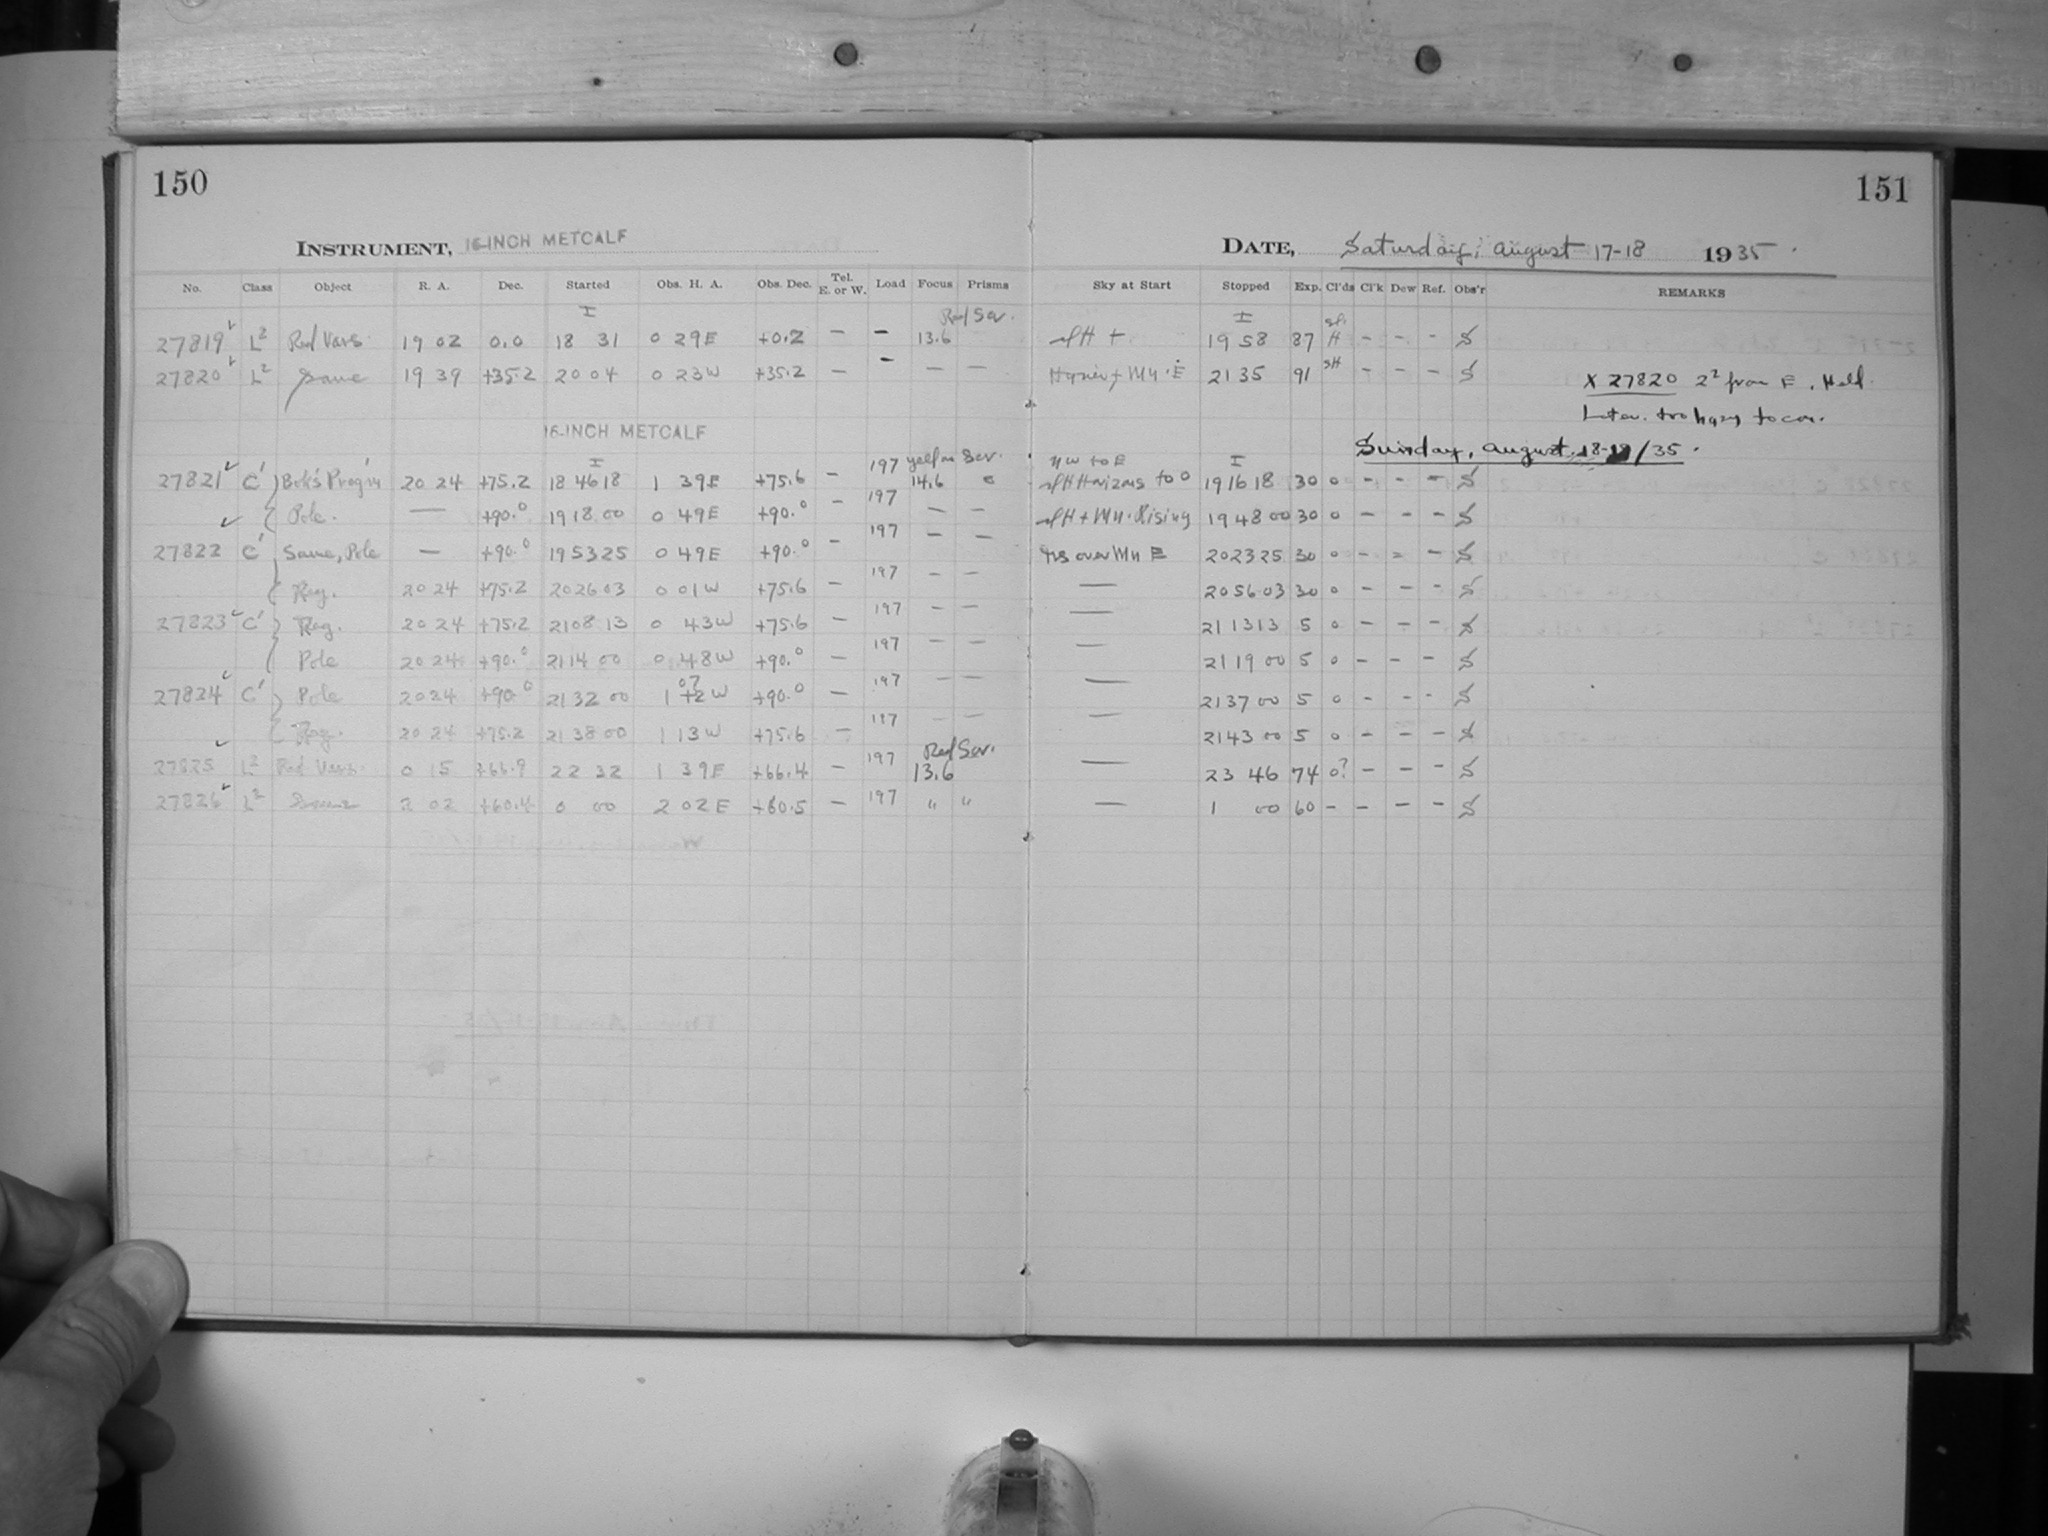 150 151
INSTRUMENT, 16-INCH METCALF DATE, Saturday, August 17-18 1935.
No. Class Object R. A. Dec. Started Obs. H. A. Obs. Dec. Tel. E. or W. Load Focus Prisms Sky at Start Stopped Exp. Cl'ds Cl'k Dew Ref. Obs'r REMARKS
I Red Scr. I
27819 L² Red Vars. 19 02 0.0 18 31 0 29E +0.2 — — 13.6 slH + 19 58 87 slH – – – S
27820 L² Same 19 39 +35.2 20 04 0 23W +35.2 — — — — + Mn. E 21 35 91 sH – – – S X 27820 2² from E. Held
Later. too hazy to con.
16-INCH METCALF Sunday, August 18-19/35.
I yellow Scr. NW to E I
27821 C' Bok's Prog'm 20 24 +75.2 18 46 18 1 39E +75.6 — 197 14.6 slH Horizons to 0 19 16 18 30 0 – – – S
Pole. — +90.0 19 18 00 0 49E +90.0 — 197 — — slH + Mn. Rising 19 48 00 30 0 – – – S
27822 C' Same, Pole — +90.0 19 53 25 0 49E +90.0 — 197 — — over Mn E 20 23 25 30 0 – = – S
Reg. 20 24 +75.2 20 26 03 0 01W +75.6 — 197 — — — 20 56 03 30 0 – – – S
27823 C' Reg. 20 24 +75.2 21 08 13 0 43W +75.6 — 197 — — — 21 13 13 5 0 – – – S
Pole 20 24 +90.0 21 14 00 0 48W +90.0 — 197 — — — 21 19 00 5 0 – – – S
07
27824 C' Pole 20 24 +90.0 21 32 00 1 12W +90.0 — 197 — — — 21 37 00 5 0 – – – S
Reg. 20 24 +75.2 21 38 00 1 13W +75.6 — 197 — — — 21 43 00 5 0 – – – S
Red Scr.
27825 L² Red Vars. 0 15 +66.9 22 32 1 39E +66.4 — 197 13.6 — 23 46 74 0? – – – S
27826 L² Same 2 02 +60.4 0 00 2 02E +60.5 — 197 " " — 1 00 60 – – – – S